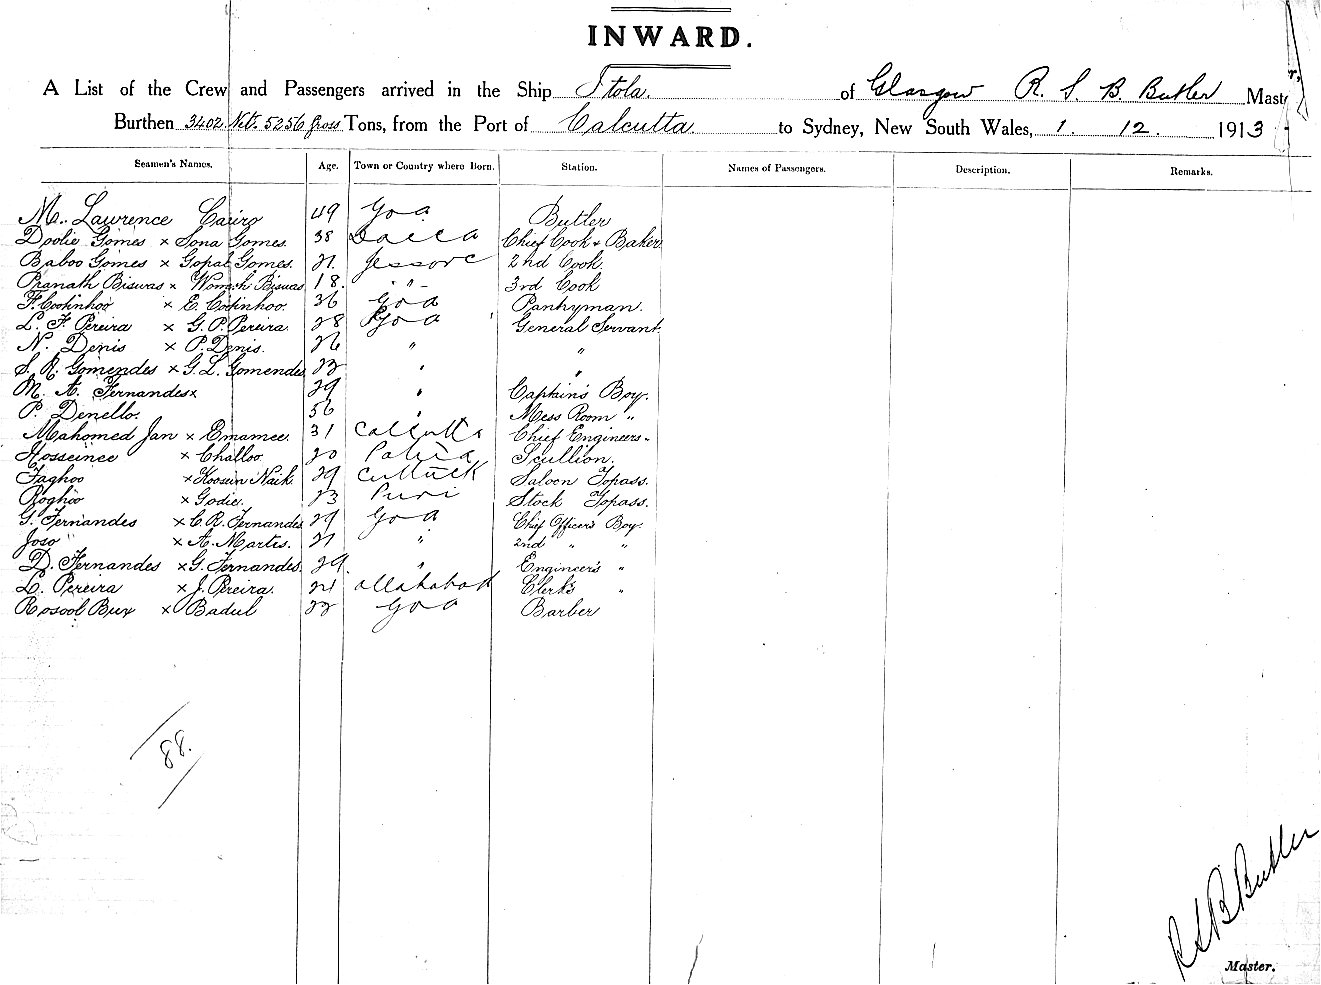 INWARD.
A List of the Crew and Passengers arrived in the Ship Itola. of Glasgow R. S. B. Butler Master,
Burthen 3402 Nett. 5256 Gross Tons, from the Port of Calcutta. to Sydney, New South Wales, 1. 12. 1913
Seamen's Names. Age. Town or Country where Born. Station. Names of Passengers. Description. Remarks.
M. Lawrence Cairo 49 Goa Butler
Doolie Gomes × Sona Gomes. 38 Dacca Chief Cook & Baker
Baboo Gomes × Gopal Gomes. 21. Jessore 2nd Cook.
Pranath Biswas × Womesh Biswas 18. " 3rd Cook
F. Cootinhoo × E. Cootinhoo. 36 Goa Pantryman.
L. F. Pereira × G. P. Pereira. 28 Goa General Servant.
N. Denis × P. Denis. 26 " "
S. R. Gomendes × G. L. Gomendes 23 " "
M. A. Fernandes × 29 " Captain's Boy.
P. Denello. 56 " Mess Room "
Mahomed Jan × Emamee. 31 Calcutta Chief Engineers "
Hosseinee × Challoo. 20 Patna Scullion.
Faghoo × Koosun Naik 29 Cuttack Saloon Topass.
Roghoo × Godie. 23 Puri Stock Topass.
G. Fernandes × C. R. Fernandes 29 Goa Chief Officer's Boy.
Joso × A. Martis. 21 " 2nd " "
D. Fernandes × G. Fernandes. 29. " Engineer's "
L. Pereira × J. Pereira. 21 allahabad Clerk's "
Rosool Bux × Badul 22 Goa Barber
88.
R S B Butler
Master.